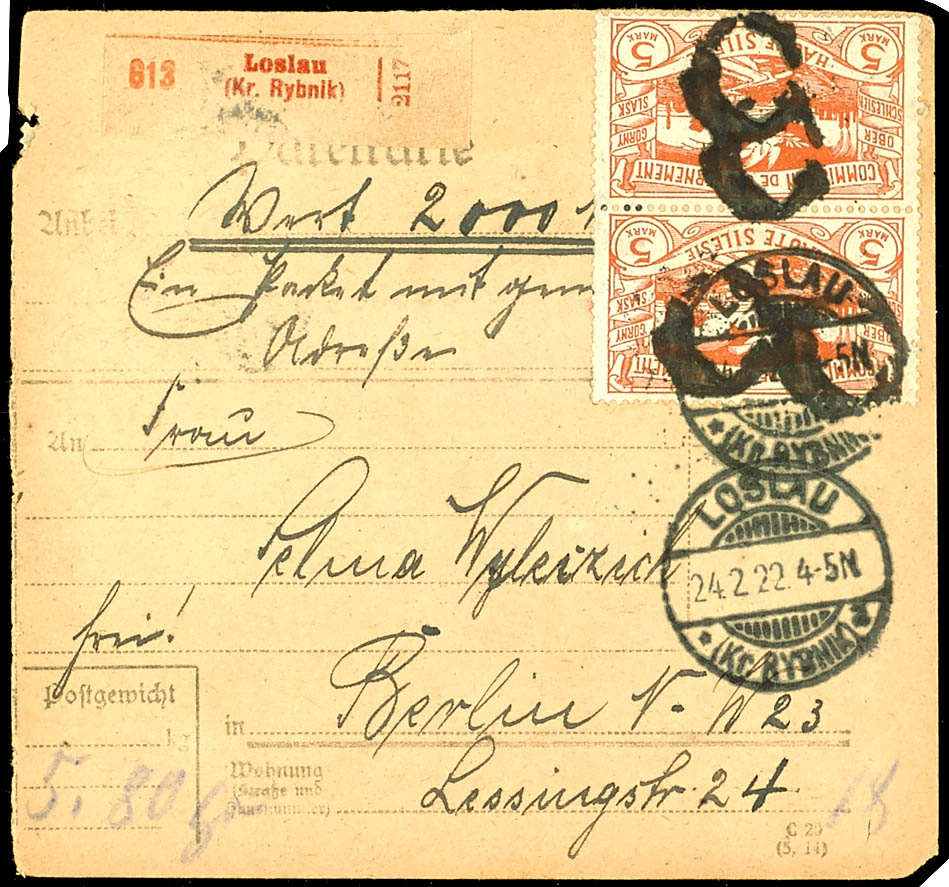 613 Loslau
(Kr. Rybnik) 2117
Wert 2000
Ein Paket mit
Adresse
An Frau
Selma Wyleizich
frei!
Berlin N-W 23
in
Wohnung
(Straße und
Hausnummer)
Lessingstr. 24
Postgewicht
kg
5. 80
C 29
(5. 14)
5 MARK HAUTE SILESIE 5 MARK
SLASK GORNY OBER SCHLESIEN
COMMISSION DE GOUVERNEMENT
5 MARK HAUTE SILESIE 5 MARK
SLASK GORNY OBER
LOSLAU
5N
(Kr. RYBNIK)
LOSLAU
24.2.22. 4-5N
* (Kr. RYBNIK)